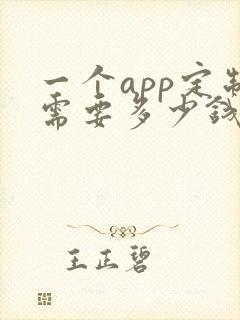 一个app定制
需要多少钱
王正碧